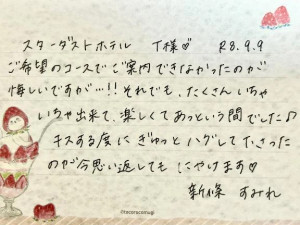 スターダストホテル T様♡ R8.9.9
ご希望のコースでご案内できなかったのが
悔しいですが…!! それでも、たくさんいちゃ
いちゃ出来て、楽しくてあっという間でした♪
キスする度にぎゅっとハグして下さった
のが今思い返してもにやけます♡
新條 すみれ
@tacorucomugi